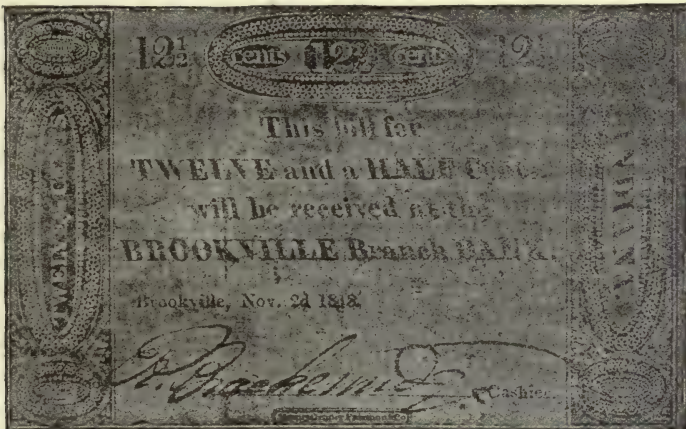 12½ cents 12½ cents 12½
This bill for
TWELVE and a HALF Cents
will be received at the
BROOKVILLE Branch BANK.
Brookville, Nov. 2d 1818.
Cashier.
INDIANA